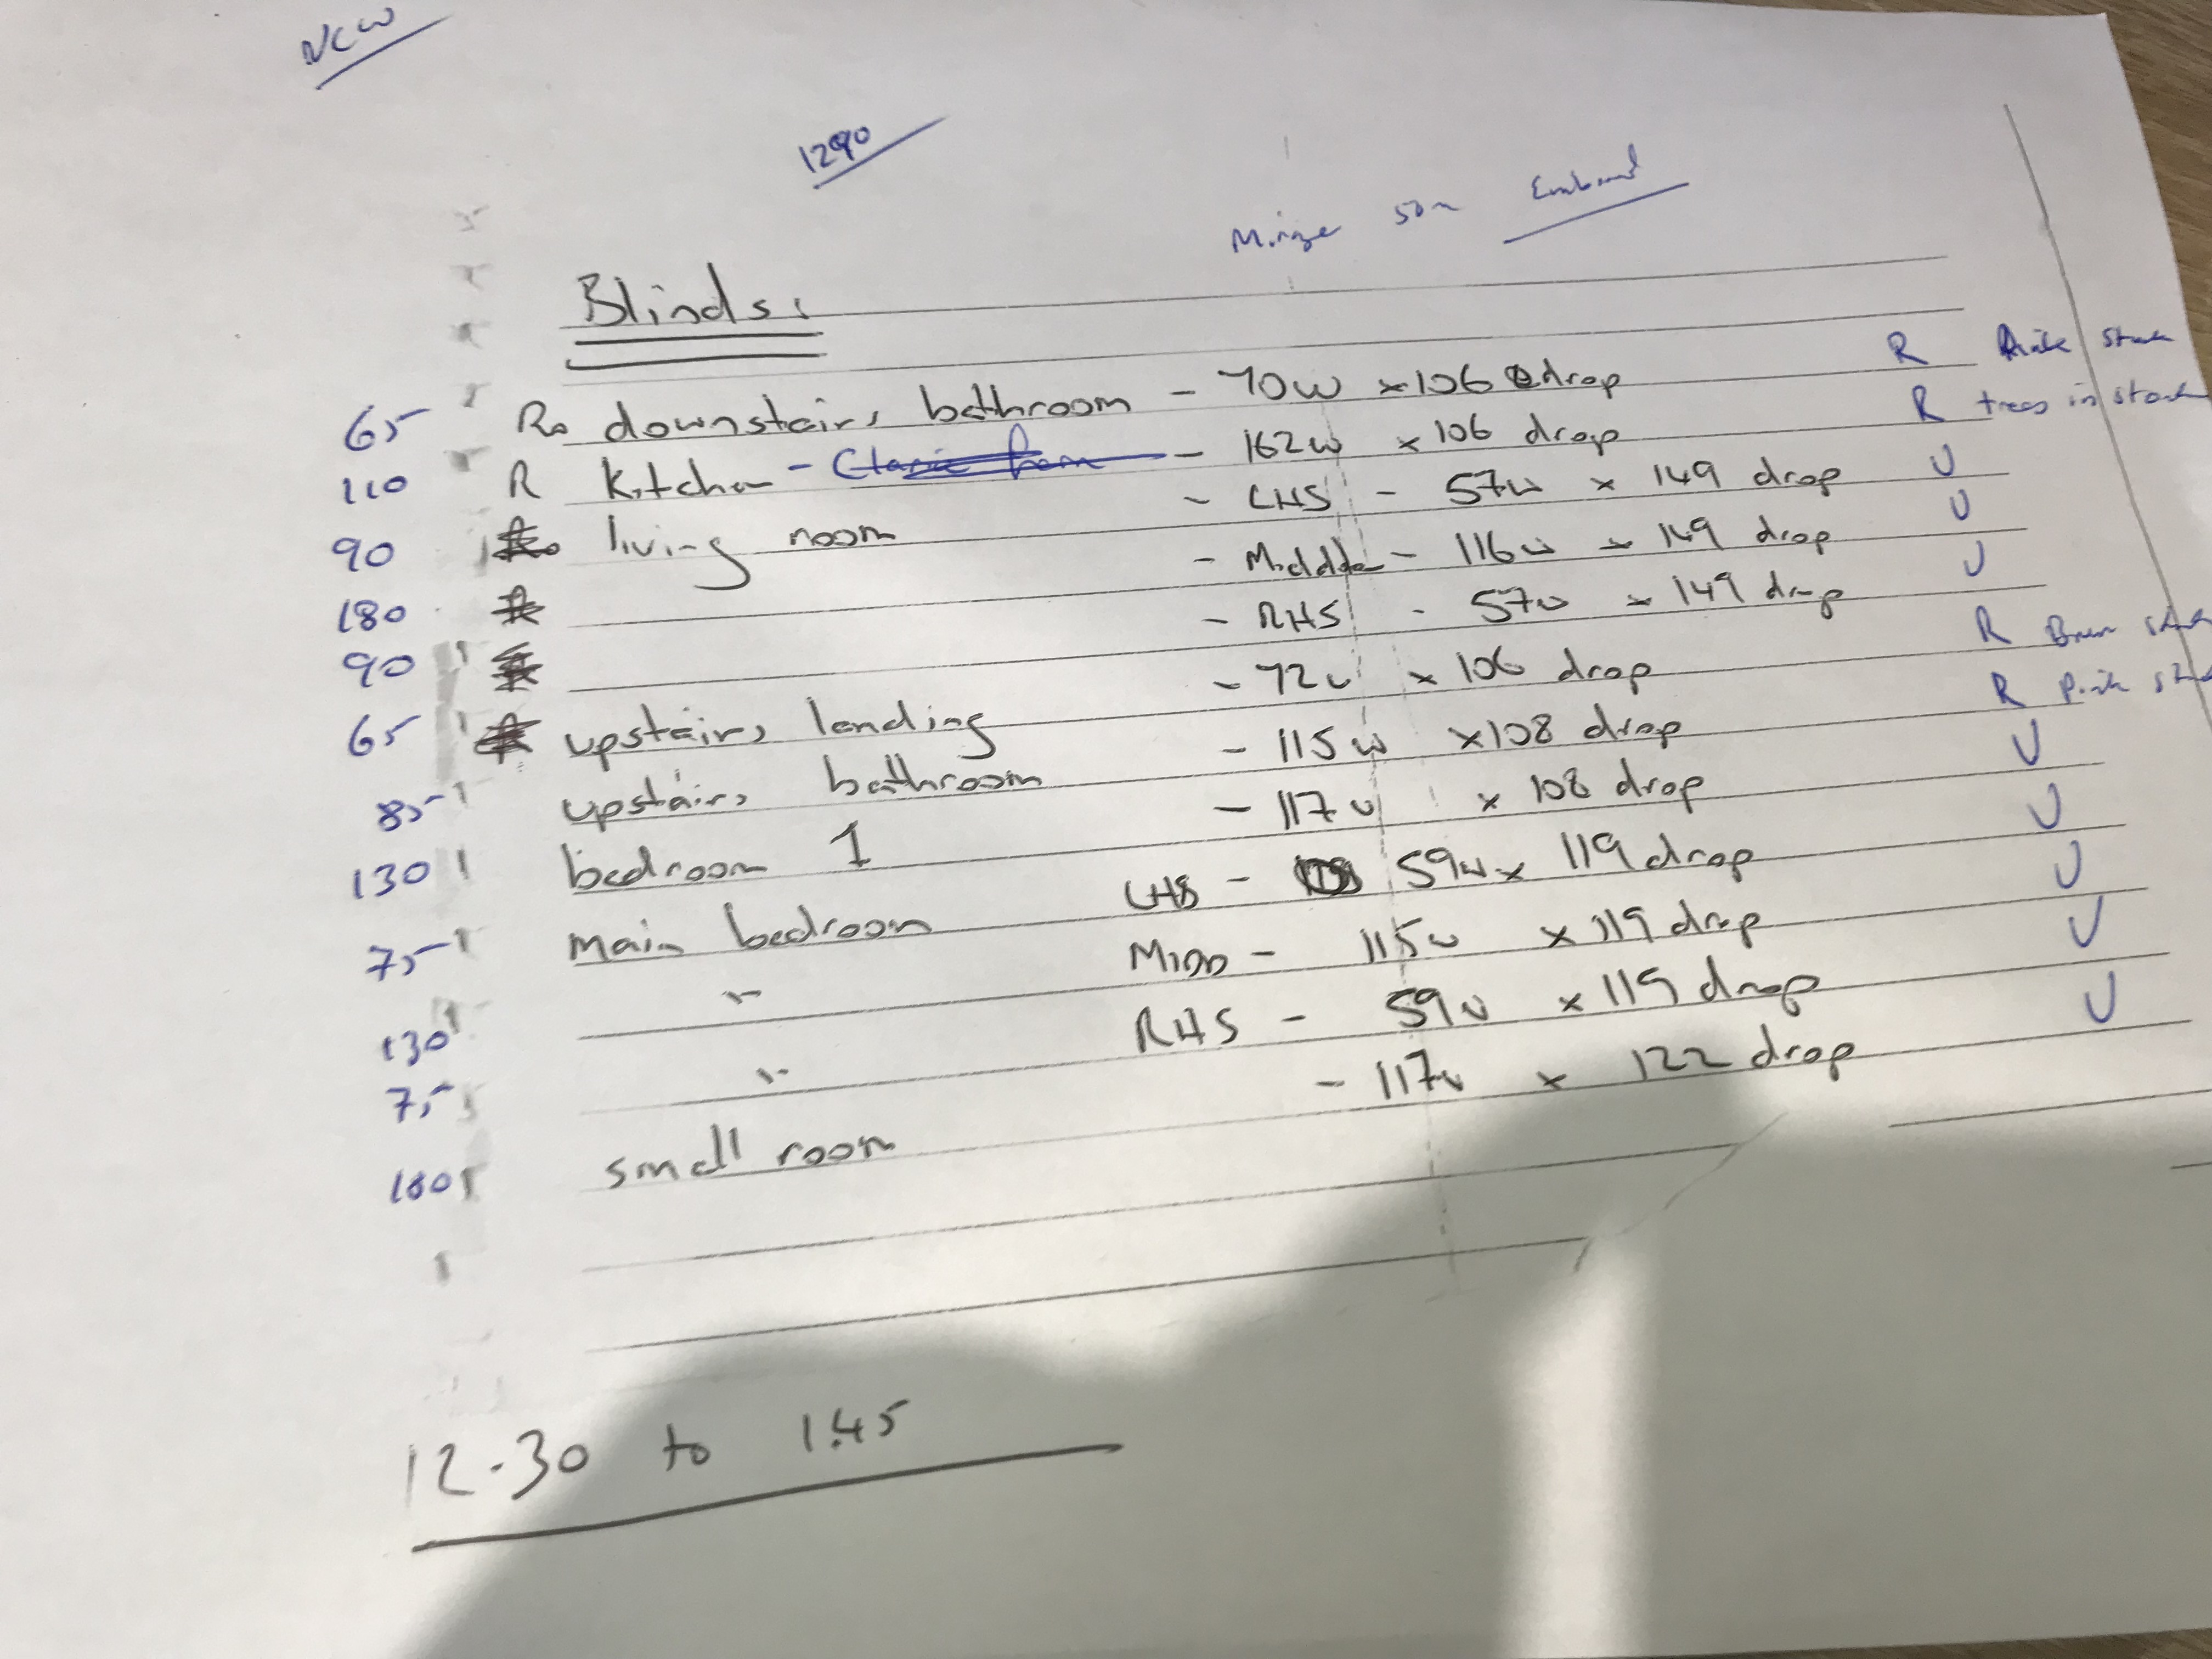 New
1290
50m
Blinds:
65 R downstairs bathroom - 70w x 106 drop R stock
110 R Kitchen - - 162w x 106 drop R trees in stock
90 living room - LHS - 57w x 149 drop U
180 - Middle - 116w x 149 drop U
90 - RHS - 57w x 149 drop U
65 upstairs landing - 72w x 106 drop R
85 upstairs bathroom - 115w x 108 drop R
130 bedroom 1 - 117w x 108 drop U
75 main bedroom LHS - 59w x 119 drop U
130 " MIDD - 115w x 119 drop U
75 " RHS - 59w x 119 drop U
small room - 117w x 122 drop U
12.30 to 1.45